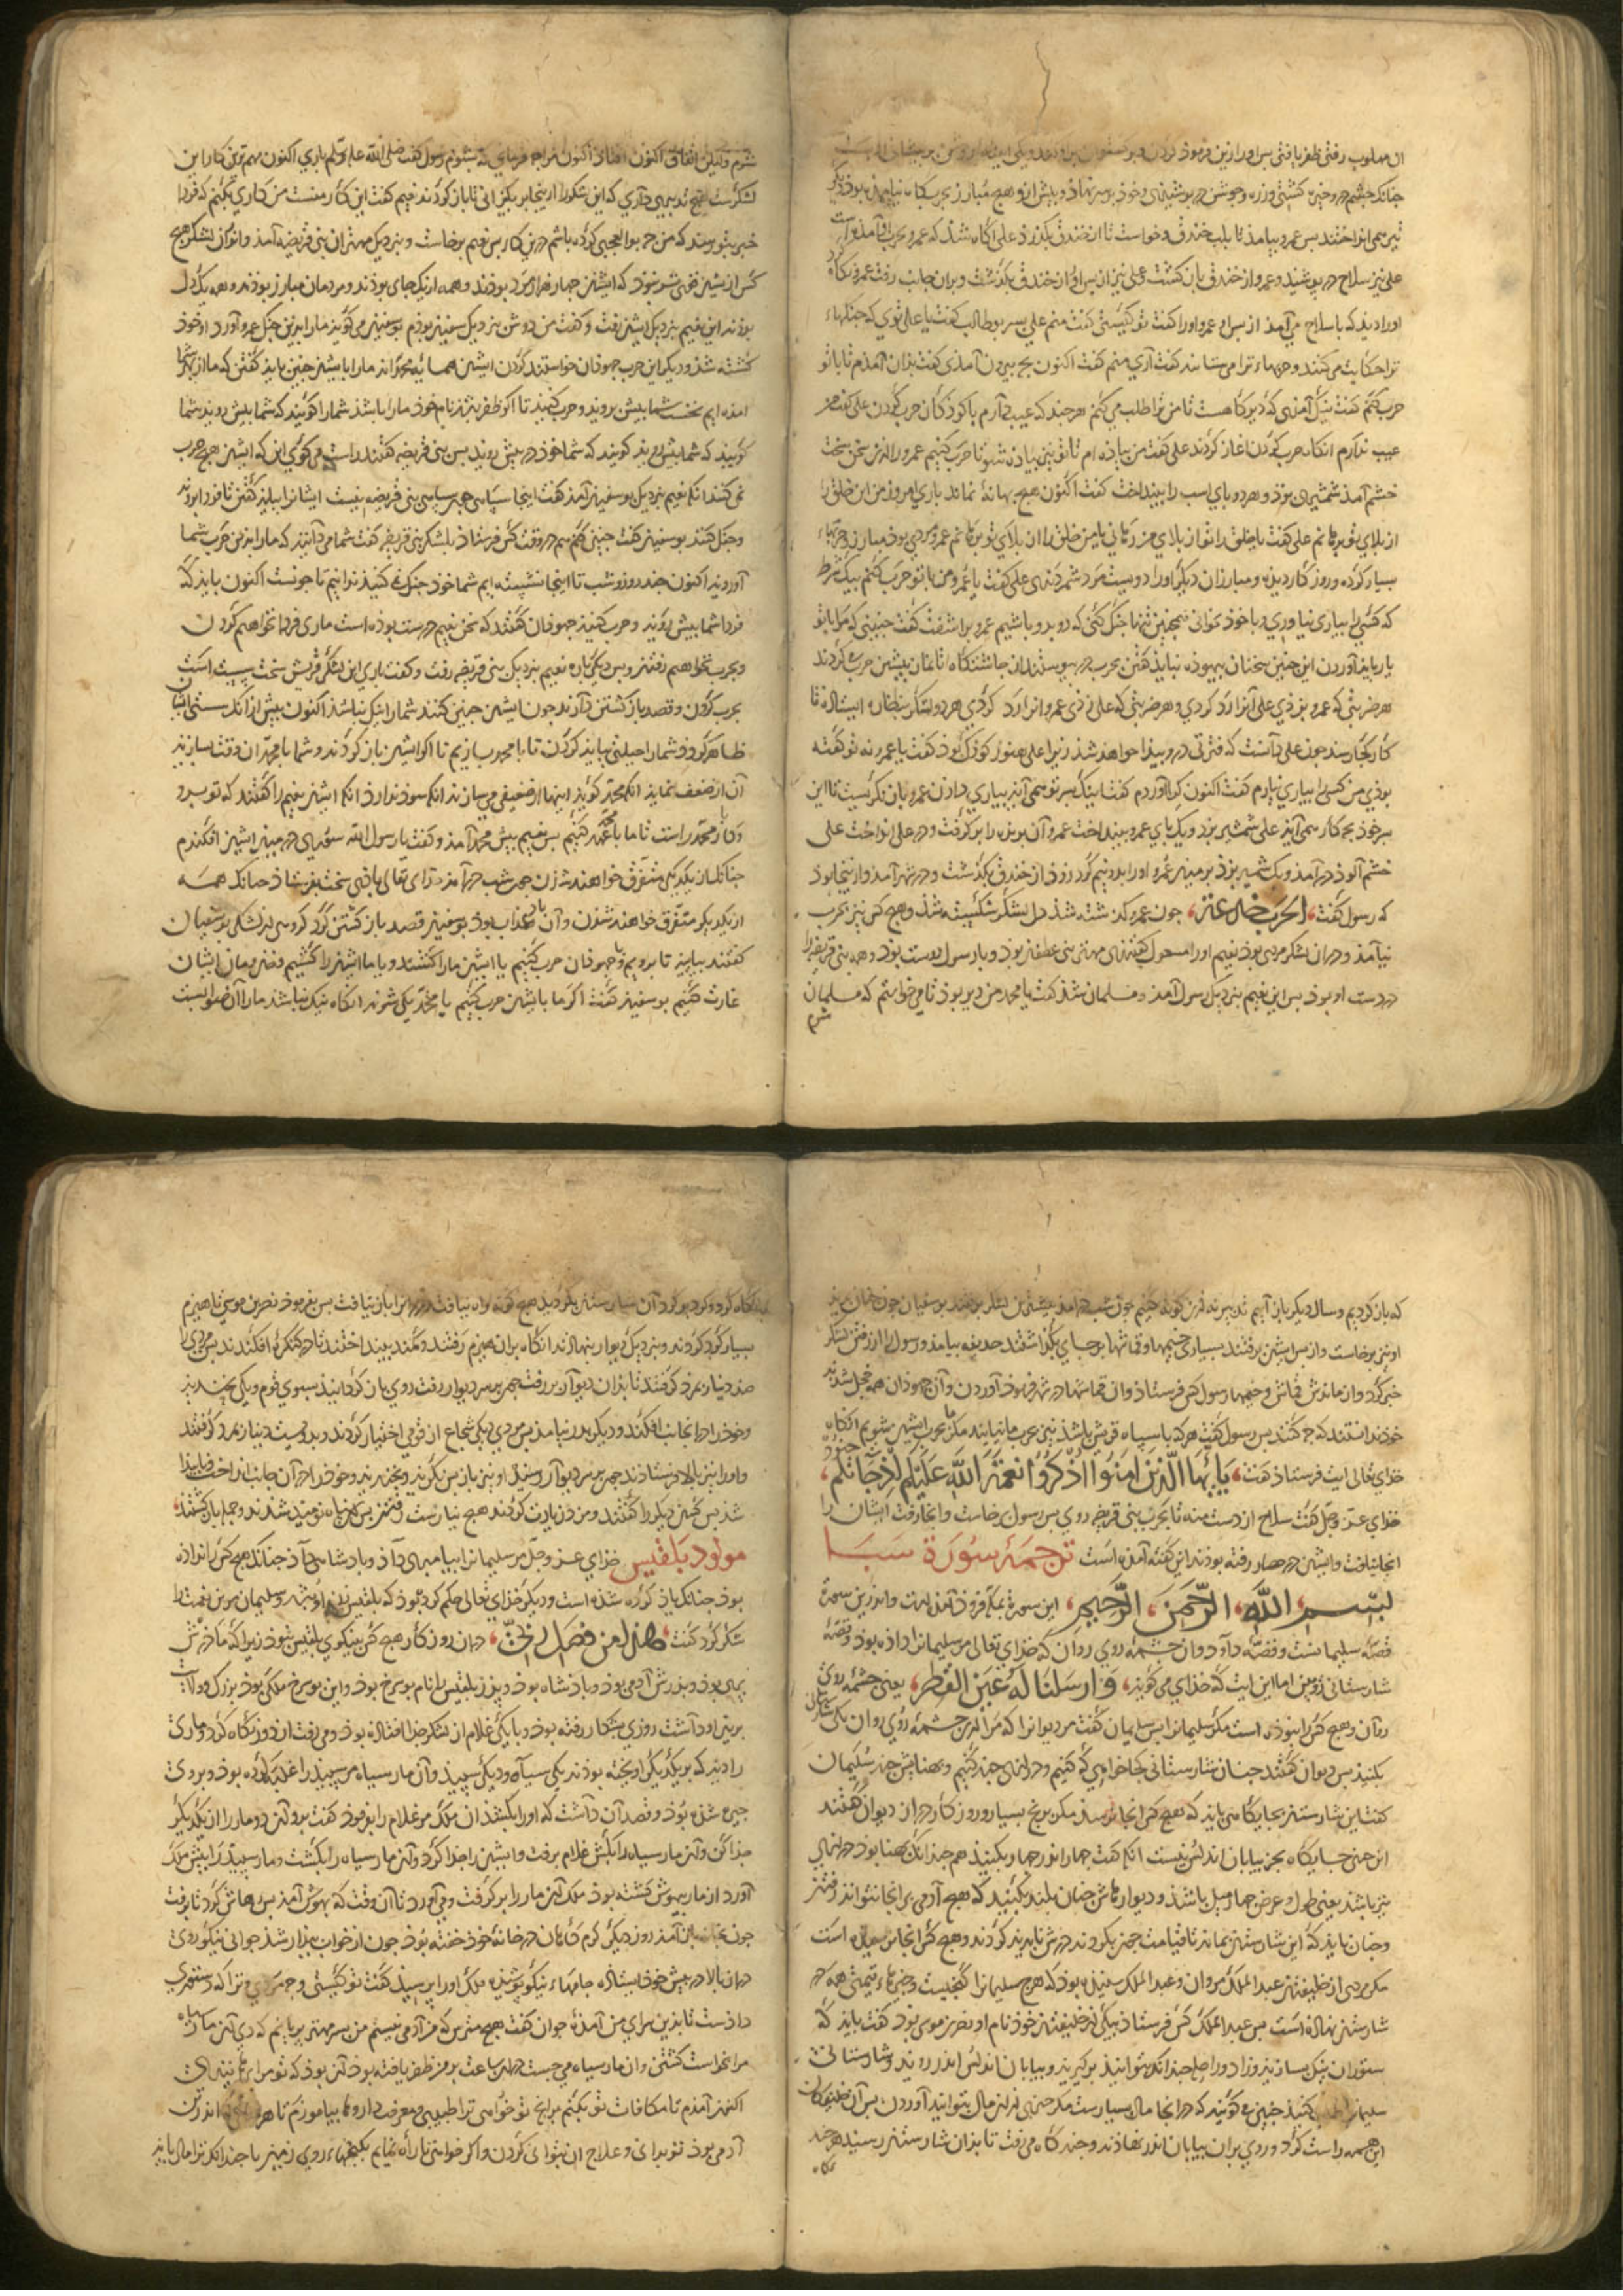 ان مهلوب رفتی ظفر یافتی بس ورا ازین فرموذ کردن و بر کستوان
جنانک جشم و جزن کشتی وزره و جوشن در بوشیذی و خوذ بر سر نهاذ و بیش او هیج مبارز بحرب کاه نیامذه بوذ دیکر
تیر همی انداختند بس عمرو بیامذ تا بلب خندق و خواست تا از خندق بکذرذ علی اکاه شذ که عمرو بحرب آمذ
علی نیز سلاح در بوشیذ و عمرو از خندق بازکشت و علی نیز از بس او از خندق بکذشت و بران جانب رفت عمرو نکاه
اورا دید که با سلاح می آمذ از بس او عمرو اورا کفت تو کیستی کفت منم علی بسر بوطالب کفت یا علی توی که جنکهاء
ترا حکایت می کنند و حربهاء ترا می ستایند کفت آری منم کفت اکنون بج بیرون آمذی کفت بذان آمذم تا با تو
حرب کنم کفت نیک آمذی که دیرکاهست تا من ترا طلب می کنم هر جند که عیب دارم با کوذکان حرب کردن علی کفت من
عیب ندارم انکاه حرب کردن اغاز کردند علی کفت من بیاذه ام تو نیز بیاذه شو تا حرب کنیم عمرو را ازین سخن سخت
خشم آمذ شمشیری بزذ و هر دو بای اسب را بینداخت کفت اکنون هیج بهانه نماند باری امروز من این خلق را
از بلای تو برهانم علی کفت یا خلق را تو از بلای من رهانی یا من خلق را از بلای تو برهانم عمرو مردی بوذ مبارز و حربهاء
بسیار کرده و روزکار دیذه و مبارزان دیکر اورا دویست مرد شمردندی علی کفت یا عمرو من با تو حرب کنم بیک شرط
که کسی را بیاری نیاوری و با خوذ نخوانی همجنین تنها جنک کنی که رو برو باشیم عمرو بر اشفت کفت جنینی که مرا با تو
یار بایذ آوردن این جنین سخنان بیهوذه نبایذ کفتن بحرب در بیوستند از جاشتکاه تا نماز بیشین حرب کردند
هر ضربتی که عمرو بزذی علی آنرا رد کردی و هر ضربتی که علی زذی عمرو انرا رد کردی هر دو لشکر بنظاره ایستاذه تا
کار کجا رسذ جون علی دانست که فترتی در و بیذا خواهذ شذ زیرا علی هنوز کوذک بوذ کفت یا عمر نه تو کفته
بوذی من کسی را بیاری نیارم کفت اکنون کرا آوردم کفت اینک بس تو همی آیذ بیاری دادن عمرو بازنکریست تا این
بس خوذ بج کار همی آیذ علی شمشیر بزذ و یک بای عمرو بینداخت عمرو آن بای بریذه را برکرفت و در علی انداخت علی
خشم آلوذ در آمذ و یک شمشیر بزذ بر میان عمرو اورا بدو نیم کرد زوذ از خندق بکذشت و در شهر آمذ و از ینجا بوذ
که رسول کفت الحرب خدعة جون عمرو کشته شذ دل لشکر شکسته شذ و هیج کس نیز بحرب
نیامذ و در ان لشکر مردی بوذ نعیم اورا مسعود کفتندی مهتر بنی غطفان بوذ و با رسول دوست بوذ و همه بنی قریظه را
در دست او بوذ بس این نعیم بنزدیک رسول آمذ و مسلمان شذ کفت یا محمد من دیر بوذ تا می خواستم که مسلمان
شوم
شوم ولیکن اتفاق اکنون افتاذ اکنون مرا جه فرمایی تا بشنوم رسول کفت صلی الله علیه وسلم باری اکنون مهم ترین کار این
لشکرست هیج تدبیری داری که این لشکر را ازینجا بر بکیزانی تا باز کردند نعیم کفت این کار منست من کاری بکنم که فردا
خبر بتو رسذ که من جه بوالعجبی کرده باشم در ین کار بس نعیم برخاست و بنزدیک مهتران بنی قریضه آمذ و از ان لشکر هیج
کس از یشان قوی تر نبوذ که ایشان جهار هزار مرد بوذند و همه از یک جای بوذند و مردمان مبارز بوذند و همه یک دل
بوذند این نعیم بنزدیک ایشان رفت و کفت من دوش بنزدیک بوسفیان بوذم بوسفیان می کویذ ما را بدین جنک عمرو آورد او خوذ
کشته شذ و دیکر این حرب جهوذان خواستند کردن ایشان همسایه محمد اند ما را با ایشان جنین بایذ کفتن که ما از بهر شما
امذه ایم نخست شما بیش روید و حرب کنید تا اکر ظفر بوذ نام خوذ ما را باشذ شما را کویند که شما بیش روید شما
کویید که شما بیش روید کویند که شما خوذ در بیش روید بس بنی قریضه کفتند راست می کوی این که ایشان هیج حرب
نمی کنند انکه نعیم بنزدیک بوسفیان آمذ کفت اینجا سباهی جز سباهی بنی قریضه نیست ایشانرا ببایذ کفتن تا فردا بروند
و جنک کنند بوسفیان کفت جنین کنم هم در وقت کس فرستاذ بلشکر بنی قریظه کفت شما می دانید که ما را بدین حرب شما
آوردید اکنون جند روز و شب تا اینجا نشسته ایم شما خوذ جنک نمی کنید ندانیم تا جونست اکنون بایذ که
فردا شما بیش روید و حرب کنید جهوذان کفتند که سخن نعیم درست بوذه است ما ری فردا نخواهیم کردن
و بحرب نخواهیم رفتن و بس دیکر باره نعیم بنزدیک بنی قریظه رفت و کفت باری این لشکر قریش سخت بسست است
بحرب کردن و قصد باز کشتن دارند جون ایشان جنین کنند شما را نیک نباشذ اکنون بیش از آنک سستی ایشان
ظاهر کردذ شما را حیلتی ببایذ کردن تا با محمد بسازیم تا اکر ایشان باز کردند و شما با محمد ان وقت بسازید
آن از ضعف نمایذ انکه محمد کویذ اینها از ضعیفی می سازند انکه سوذ ندارذ انکه ایشان نعیم را کفتند که تو برو
و کار محمد راست تا ما با محمد عهد کنیم بس نعیم بیش محمد آمذ و کفت یا رسول الله سخنی در میان ایشان افکندم
جنانک از یکدیکر متفرق خواهند شذن جون شب در آمذ خدای تعالی باذی سخت بفرستاذ جنانک همه
از یکدیکر متفرق خواهند شذن و آن باذ عذاب بوذ بوسفیان قصد باز کشتن کرد کروهی از لشکر بوسفیان
کفتند بیایید تا برویم و با جهوذان حرب کنیم یا ایشان ما را کشند و یا ما ایشان را کشیم و فرزندان ایشان
غارت کنیم بوسفیان کفت اکر ما با ایشان حرب کنیم با محمد یکی شوند انکاه نیک نباشذ ما را آن صوابست
که باز کردیم و سال دیکر باز آییم تدبیر نه ازین کونه کنیم جون شب در امذ بیشتر از لشکر برفتند بوسفیان جون جنان دیذ
او نیز برخاست و از بس ایشان برفتند بسیاری خیمها و قماشها بر جای بکذاشتند حذیفه بیامذ و رسول را از رفتن لشکر
خبر کرد و از ماندن قماش و خیمها رسول کس فرستاذ و ان قماشها در شهر فرموذ آوردن و آن جهوذان همه خجل شدند
خوذ ندانستند که جه کنند بس رسول کفت هر که با سباه قریش باشذ نیز بحرب ما نیایند مکر ما بحرب ایشان شویم انکاه
خذای تعالی ایت فرستاذ کفت یا ایها الذین امنوا اذکروا نعمة الله علیکم اذ جاءتکم جنود
خذای عز و جل کفت سلاح از دست منه تا بحرب بنی قریضه روی بس رسول برخاست و انجا رفت ایشان را
انجا نیافت و ایشان در حصار رفته بوذند این کفته آمذه است ترجمهٔ سورة سبا
بسم الله الرحمن الرحیم این سورة بمکه فروذ آمذه است و اندرین سورة
قصهٔ سلیمانست و قصهٔ داوذ و ان جشمه روی روان که خذای تعالی مر سلیمانرا داذه بوذ و قصهٔ
شارستانی رویین اما این ایت که خذای می کویذ و ارسلنا له عین القطر یعنی جشمهٔ روی
روان و هیج کس را نبوذه است مکر سلیمانرا بس سلیمان کفت مر دیوانرا که مرا ازین جشمهٔ روی روان یکی شارستان
بکنید بس دیوان کفتند جنان شارستانی کجا خواهی که کنیم و درازی جند کنیم و بهنایش جند سلیمان
کفت این شارستان بجایکاهی بایذ که هیج کس انجا نرسذ مکر برنج بسیار و روزکار دراز دیوان کفتند
این جنین جایکاه بجز بیابان اندلس نیست انکه کفت جهار اندر جهار بکنید هم جندانک بهنا بوذ درازی
نیز باشذ یعنی طول و عرض جهار میل باشذ و دیوارهاش جنان بلند بکنید که هیج آدمی بر انجا نتواند رفتن
و جنان بایذ که این شارستان بماند تا قیامت جون بکردند درش نابدید کردند و هیج کس انجا نرسیده است
مکر مردی از خلیفتان عبد الملک مروان و عبد الملک شنیذه بوذ که هرج سلیمانرا کنجیست و جیزهاء قیمتی همه در
شارستان نهاذه است بس عبد الملک کس فرستاذ بیکی از خلیفتان خوذ نام او نصر بن موسی بوذ کفت بایذ که
ستوران نیک بسازید و زاذ و راحله جندانک بتوانید برکیرید و ببیابان اندلس اندر روید و شارستانی
سلیمانرا طلب کنید جنین می کویند که در انجا مال بسیارست مکر جیزی از ان مال بتوانید آوردن بس آن خلیفتان
این همه راست کرد و روی بران بیابان اندر نهاذند و جند کاه می رفت تا بذان شارستان رسیذ هر جند
نکاه
نکاه کرد و کرد بر کرد آن شارستان بکردید هیج کونه راه نیافت و در انرا باز نیافت بس بفرموذ نصر بن موسی تا هیزم
بسیار کرد کردند و بنزدیک دیوار بنهاذند انکاه بران هیزم رفتند و کمند بینداختند تا در کنکره افکندند بس مردی را
صذ دینار بمزد کرفتند تا بذان دیوار بر رفت جون بر سر دیوار رفت روی باز کردانیذ بسوی قوم و یکی بخندیذ
و خوذ را در انجانب افکند و دیکر بدر نیامذ بس مردی دیکر شجاع از قومی اختیار کردند و بدویست دینار بمزد کرفتند
و اورا نیز بالا فرستاذند جون بر سر دیوار رسیذ او نیز باز بس نکریذ و بخندیذ و خوذ را در آن جانب انداخت و نابیذا
شذ بس کسان دیکر را کفتند و مزد زیادت کردند هیج نیارست رفتن بس همه نومیذ شذند و جمله باز کشتند
مولود بلقیس خذای عز و جل مر سلیمانرا بیامبری داذ و باذشاهی داذ جنانک هیج کس را نداذه
بوذ جنانک یاذ کرده شذه است و دیکر خذای تعالی حکم کرده بوذ که بلقیس زن او باشذ و سلیمان مرین نعمت را
شکر کرد کفت هذا من فضل ربی در ان روزکار هیج کس بنیکوی بلقیس نبوذ زیرا که ماذرش
بری بوذ و بذرش آدمی بوذ و باذشاه بوذ و بذر بلقیس را نام بوسرخ بوذ و این بوسرخ ملکی بوذ بزرک و ولایت
برین او داشت روزی بشکار رفته بوذ و با یکی غلام از لشکر جذا افتاذه بوذ و می رفت از دور نکاه کرد و ماری
را دیذ که بر یکدیکر اویخته بوذند یکی سیاه و دیکر سبیذ و آن مار سیاه مر سبیذ را غلبه کرده بوذ و بر وی
جیره شذه بوذ و قصد آن داشت که اورا بکشذ ان ملک مر غلام را بفرموذ کفت برو آن دو مار را از یکدیکر
جذا کن و آن مار سیاه را بکش غلام برفت و ایشان را جذا کرد و آن مار سیاه را بکشت و مار سبیذ را بیش ملک
آورد از مار بیهوش کشته بوذ ملک آن مار را بر کرفت و می آورد تا آن وقت که بهوش آمذ بس رهاش کرد تا برفت
جون بخانه باز آمذ روز دیکر کرم کاهان در خانهٔ خوذ خفته بوذ جون از خواب بیذار شذ جوانی نیکو روی
دران بالا در بیش خوذ ایستاذه جامهاء نیکو بوشیذه ملک اورا ببرسیذ کفت تو کیستی و جه مردی و ترا که دستوری
داذست تا بذین سرای من آمذی جوان کفت هیج مترس که من آدمی نیستم من بسر مهتر بریانم که دی آن مار سیاه
مرا خواست کشتن و ان مار سیاه می جست در ان ساعت بر من ظفر یافته بوذ آن بوذ که تو مرا برهانیدی
اکنون آمذم تا مکافات تو بکنم بر انج تو خواهی ترا طبیبی و معرفت داروها بیاموزم تا هر علتی که اندرین
آدمی بوذ تو بدانی و علاج ان بتوانی کردن و اکر خواهی ترا راه نمایم بکنجهاء روی زمین تا جندانک ترا مال بایذ